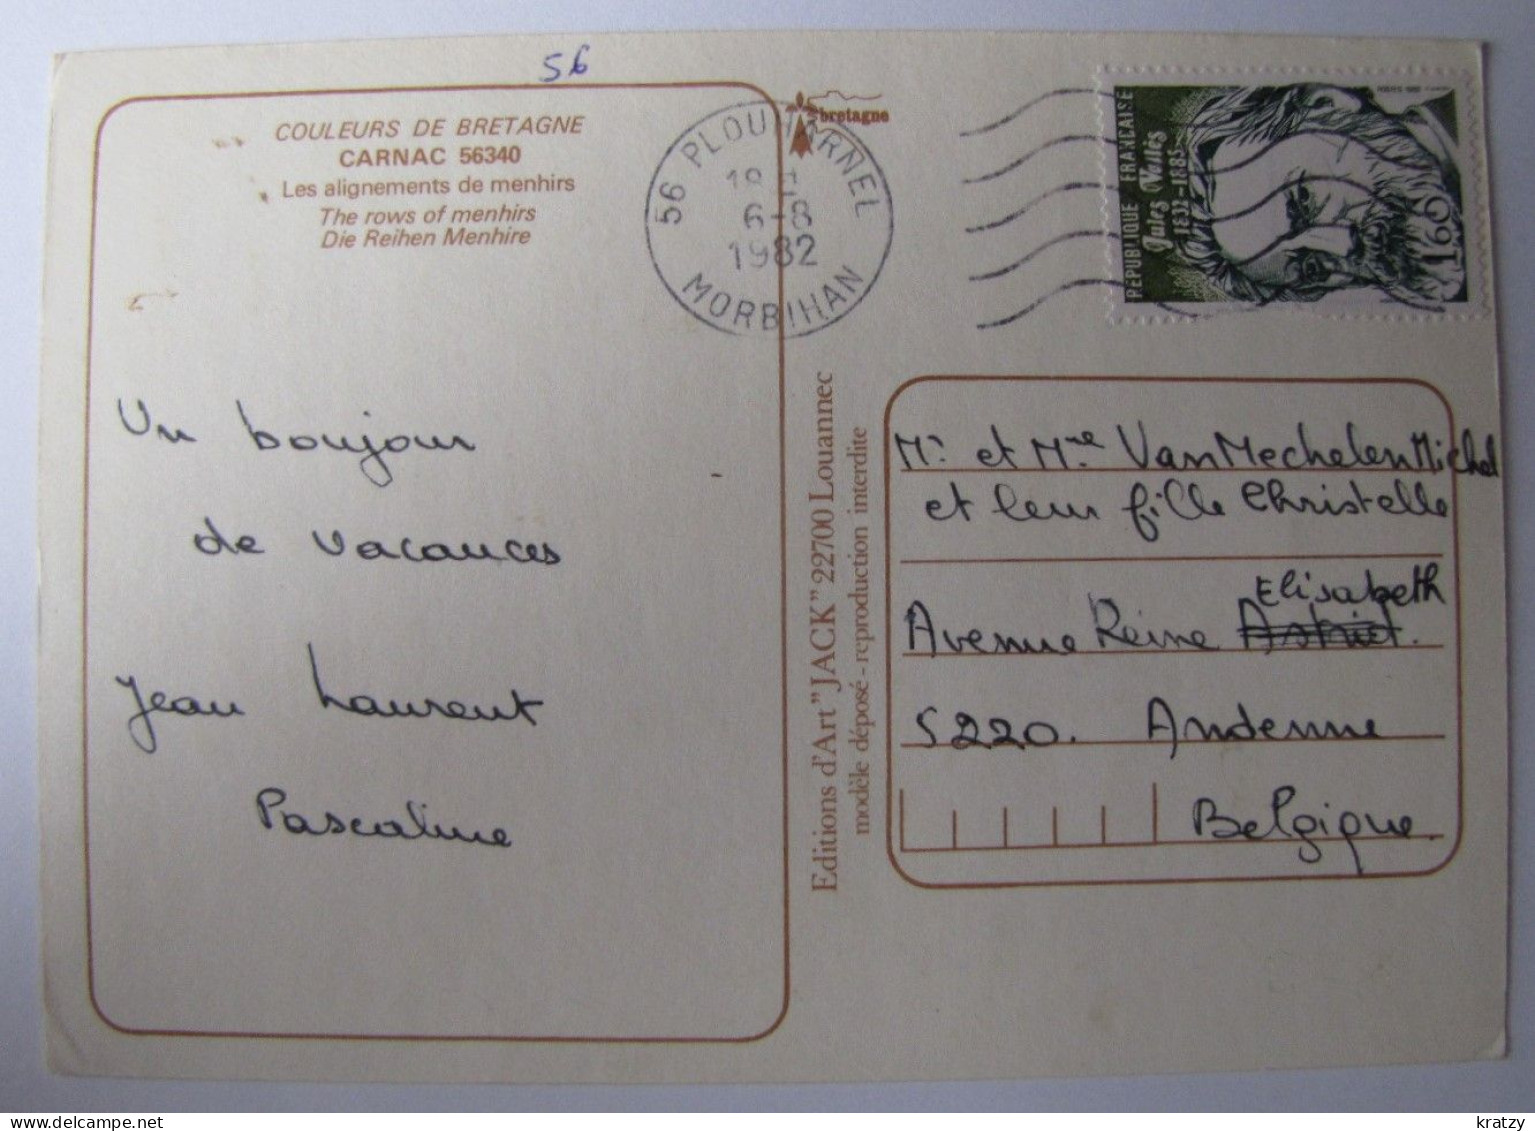 56
COULEURS DE BRETAGNE
CARNAC 56340
Les alignements de menhirs
The rows of menhirs
Die Reihen Menhire
Un bonjour
de vacances
Jean Laurent
Pascaline
56 PLOUHARNEL
18 H
6-8
1982
MORBIHAN
bretagne
REPUBLIQUE FRANCAISE
Jules Vallès
1832-1885
1,60
Editions d'Art "JACK" 22700 Louannec
modèle déposé - reproduction interdite
Mr et Mme Van Mechelen Michel
et leur fille Christelle
Avenue Reine Elisabeth
Astrid.
5220. Andenne
Belgique.
kratzy